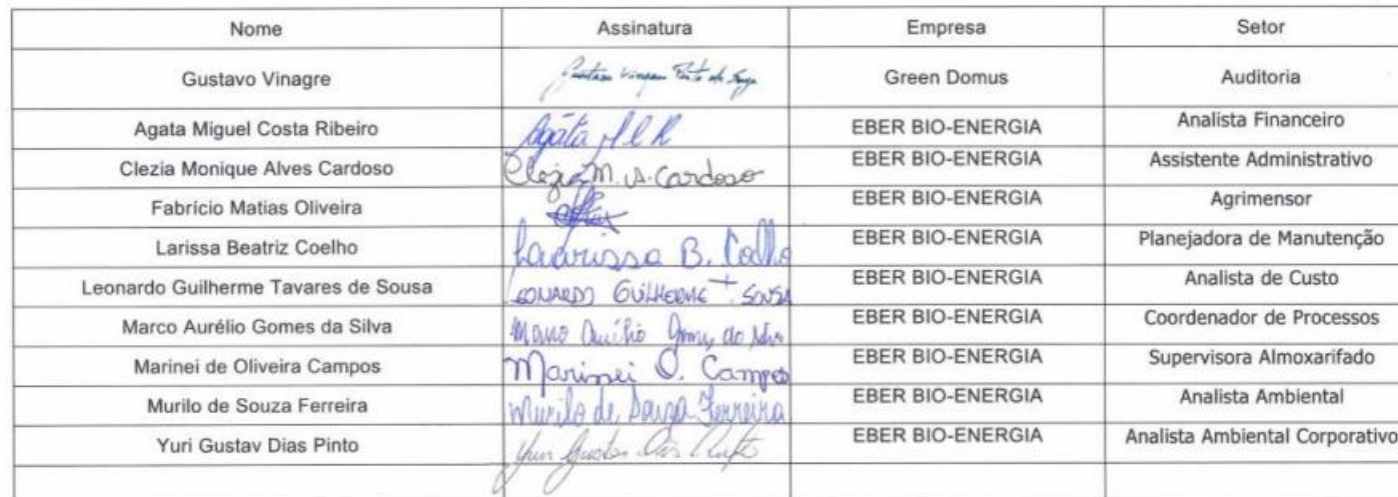 Nome Assinatura Empresa Setor
Gustavo Vinagre Gustavo Vinagre Green Domus Auditoria
Agata Miguel Costa Ribeiro Agáta M C R EBER BIO-ENERGIA Analista Financeiro
Clezia Monique Alves Cardoso Clezia M. A. Cardoso EBER BIO-ENERGIA Assistente Administrativo
Fabrício Matias Oliveira EBER BIO-ENERGIA Agrimensor
Larissa Beatriz Coelho Larissa B. Coelho EBER BIO-ENERGIA Planejadora de Manutenção
Leonardo Guilherme Tavares de Sousa LEONARDO GUILHERME T. SOUSA EBER BIO-ENERGIA Analista de Custo
Marco Aurélio Gomes da Silva Marco Aurélio Gomes da Silva EBER BIO-ENERGIA Coordenador de Processos
Marinei de Oliveira Campos Marinei O. Campos EBER BIO-ENERGIA Supervisora Almoxarifado
Murilo de Souza Ferreira Murilo de Souza Ferreira EBER BIO-ENERGIA Analista Ambiental
Yuri Gustav Dias Pinto Yuri Gustav Dias Pinto EBER BIO-ENERGIA Analista Ambiental Corporativo